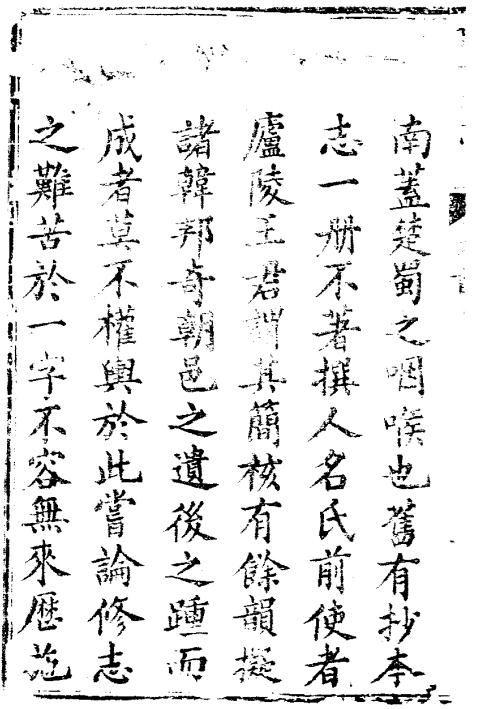 南蓋楚蜀之咽喉也舊有抄本
志一册不著撰人名氏前使者
廬陵王君謂其簡核有餘韻擬
諸韓邦奇朝邑之遺後之踵而
成者莫不權輿於此嘗論修志
之難苦於一字不容無來歷范